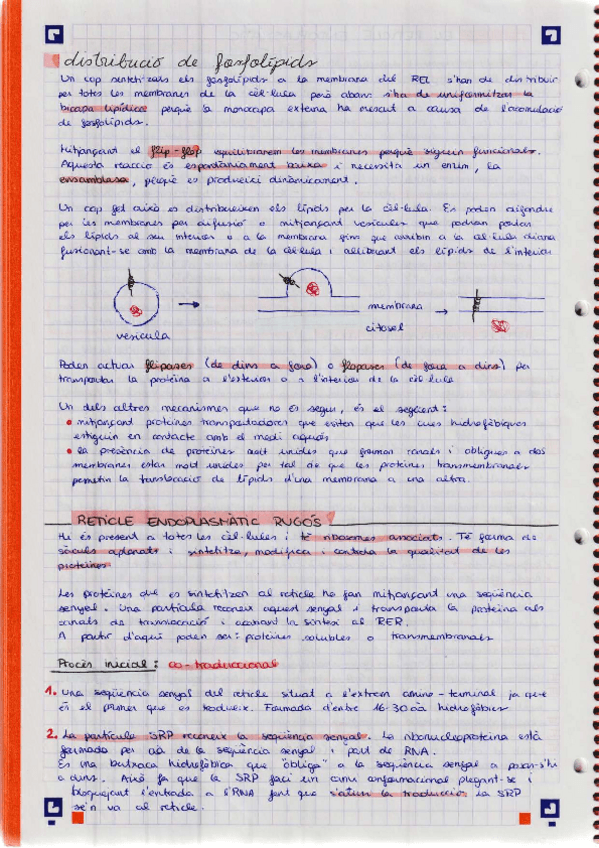 distribució de fosfolípids
Un cop sintetitzats els fosfolípids a la membrana del REL s'han de distribuir
per totes les membranes de la cèl·lula però abans s'ha de uniformitzar la
bicapa lipídica perquè la monocapa externa ha crescut a causa de l'acumulació
de fosfolípids.
Mitjançant el flip-flop equilibrarem les membranes perquè siguin funcionals.
Aquesta reacció és espontàniament baixa i necessita un enzim, la
ensamblasa, perquè es produeixi dinàmicament.
Un cop fet això es distribueixen els lípids per la cèl·lula. Es poden difondre
per les membranes per difusió o mitjançant vesícules que podran portar
els lípids al seu interior o a la membrana fins que arribin a la cèl·lula diana
fusionant-se amb la membrana de la cèl·lula i alliberant els lípids de l'interior
vesícula
membrana
citosol
Poden actuar flipases (de dins a fora) o flopases (de fora a dins) per
transportar la proteïna a l'exterior o a l'interior de la cèl·lula
Un dels altres mecanismes que no és segur, és el següent:
• mitjançant proteïnes transportadores que eviten que les cues hidrofòbiques
estiguin en contacte amb el medi aquós
• la presència de proteïnes molt unides que formen canals i obliguen a dos
membranes estar molt unides per tal de que les proteïnes transmembranals
permetin la translocació de lípids d'una membrana a una altra.
RETICLE ENDOPLASMÀTIC RUGÓS
Hi és present a totes les cèl·lules i té ribosomes associats. Té forma de
sàculs aplanats i sintetitza, modifica i controla la qualitat de les
proteïnes
Les proteïnes que es sintetitzen al reticle ho fan mitjançant una seqüència
senyal. Una partícula reconeix aquest senyal i transporta la proteïna als
canals de translocació i acaben la síntesi al RER.
A partir d'aquí poden ser: proteïnes solubles o transmembranals
Procés inicial: co-traduccional
1. Una seqüència senyal del reticle situat a l'extrem amino-terminal ja que
és el primer que es tradueix. Formada d'entre 16-30 aà hidrofòbics
2. La partícula SRP reconeix la seqüència senyal. La ribonucleoproteïna està
formada per aà de la seqüència senyal i part de RNA.
És una butxaca hidrofòbica que "obliga" a la seqüència senyal a posar-s'hi
a dins. Això fa que la SRP faci un canvi conformacional plegant-se i
bloquejant l'entrada a l'RNA fent que s'aturi la traducció. La SRP
se'n va al reticle.